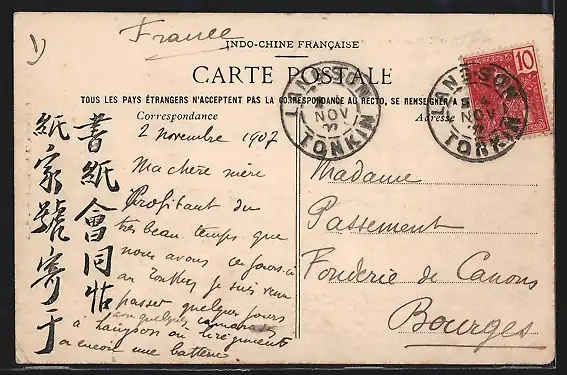 1)
France
INDO-CHINE FRANÇAISE
CARTE POSTALE
TOUS LES PAYS ÉTRANGERS N'ACCEPTENT PAS LA CORRESPONDANCE AU RECTO, SE RENSEIGNER A
Correspondance
Adresse
10
LANG-SON
NOV
TONKIN
LANG-SON
NOV
TONKIN
2 Novembre 1907
Ma chère mère
Profitant du
très beau temps que
nous avons ces jours-ci
au Tonkin je suis venu
passer quelques jours
avec quelques camarades
à Langson où
a encore une batterie
Madame
Passement
Fonderie de Canons
Bourges
書紙會同帖
紙家號寄于